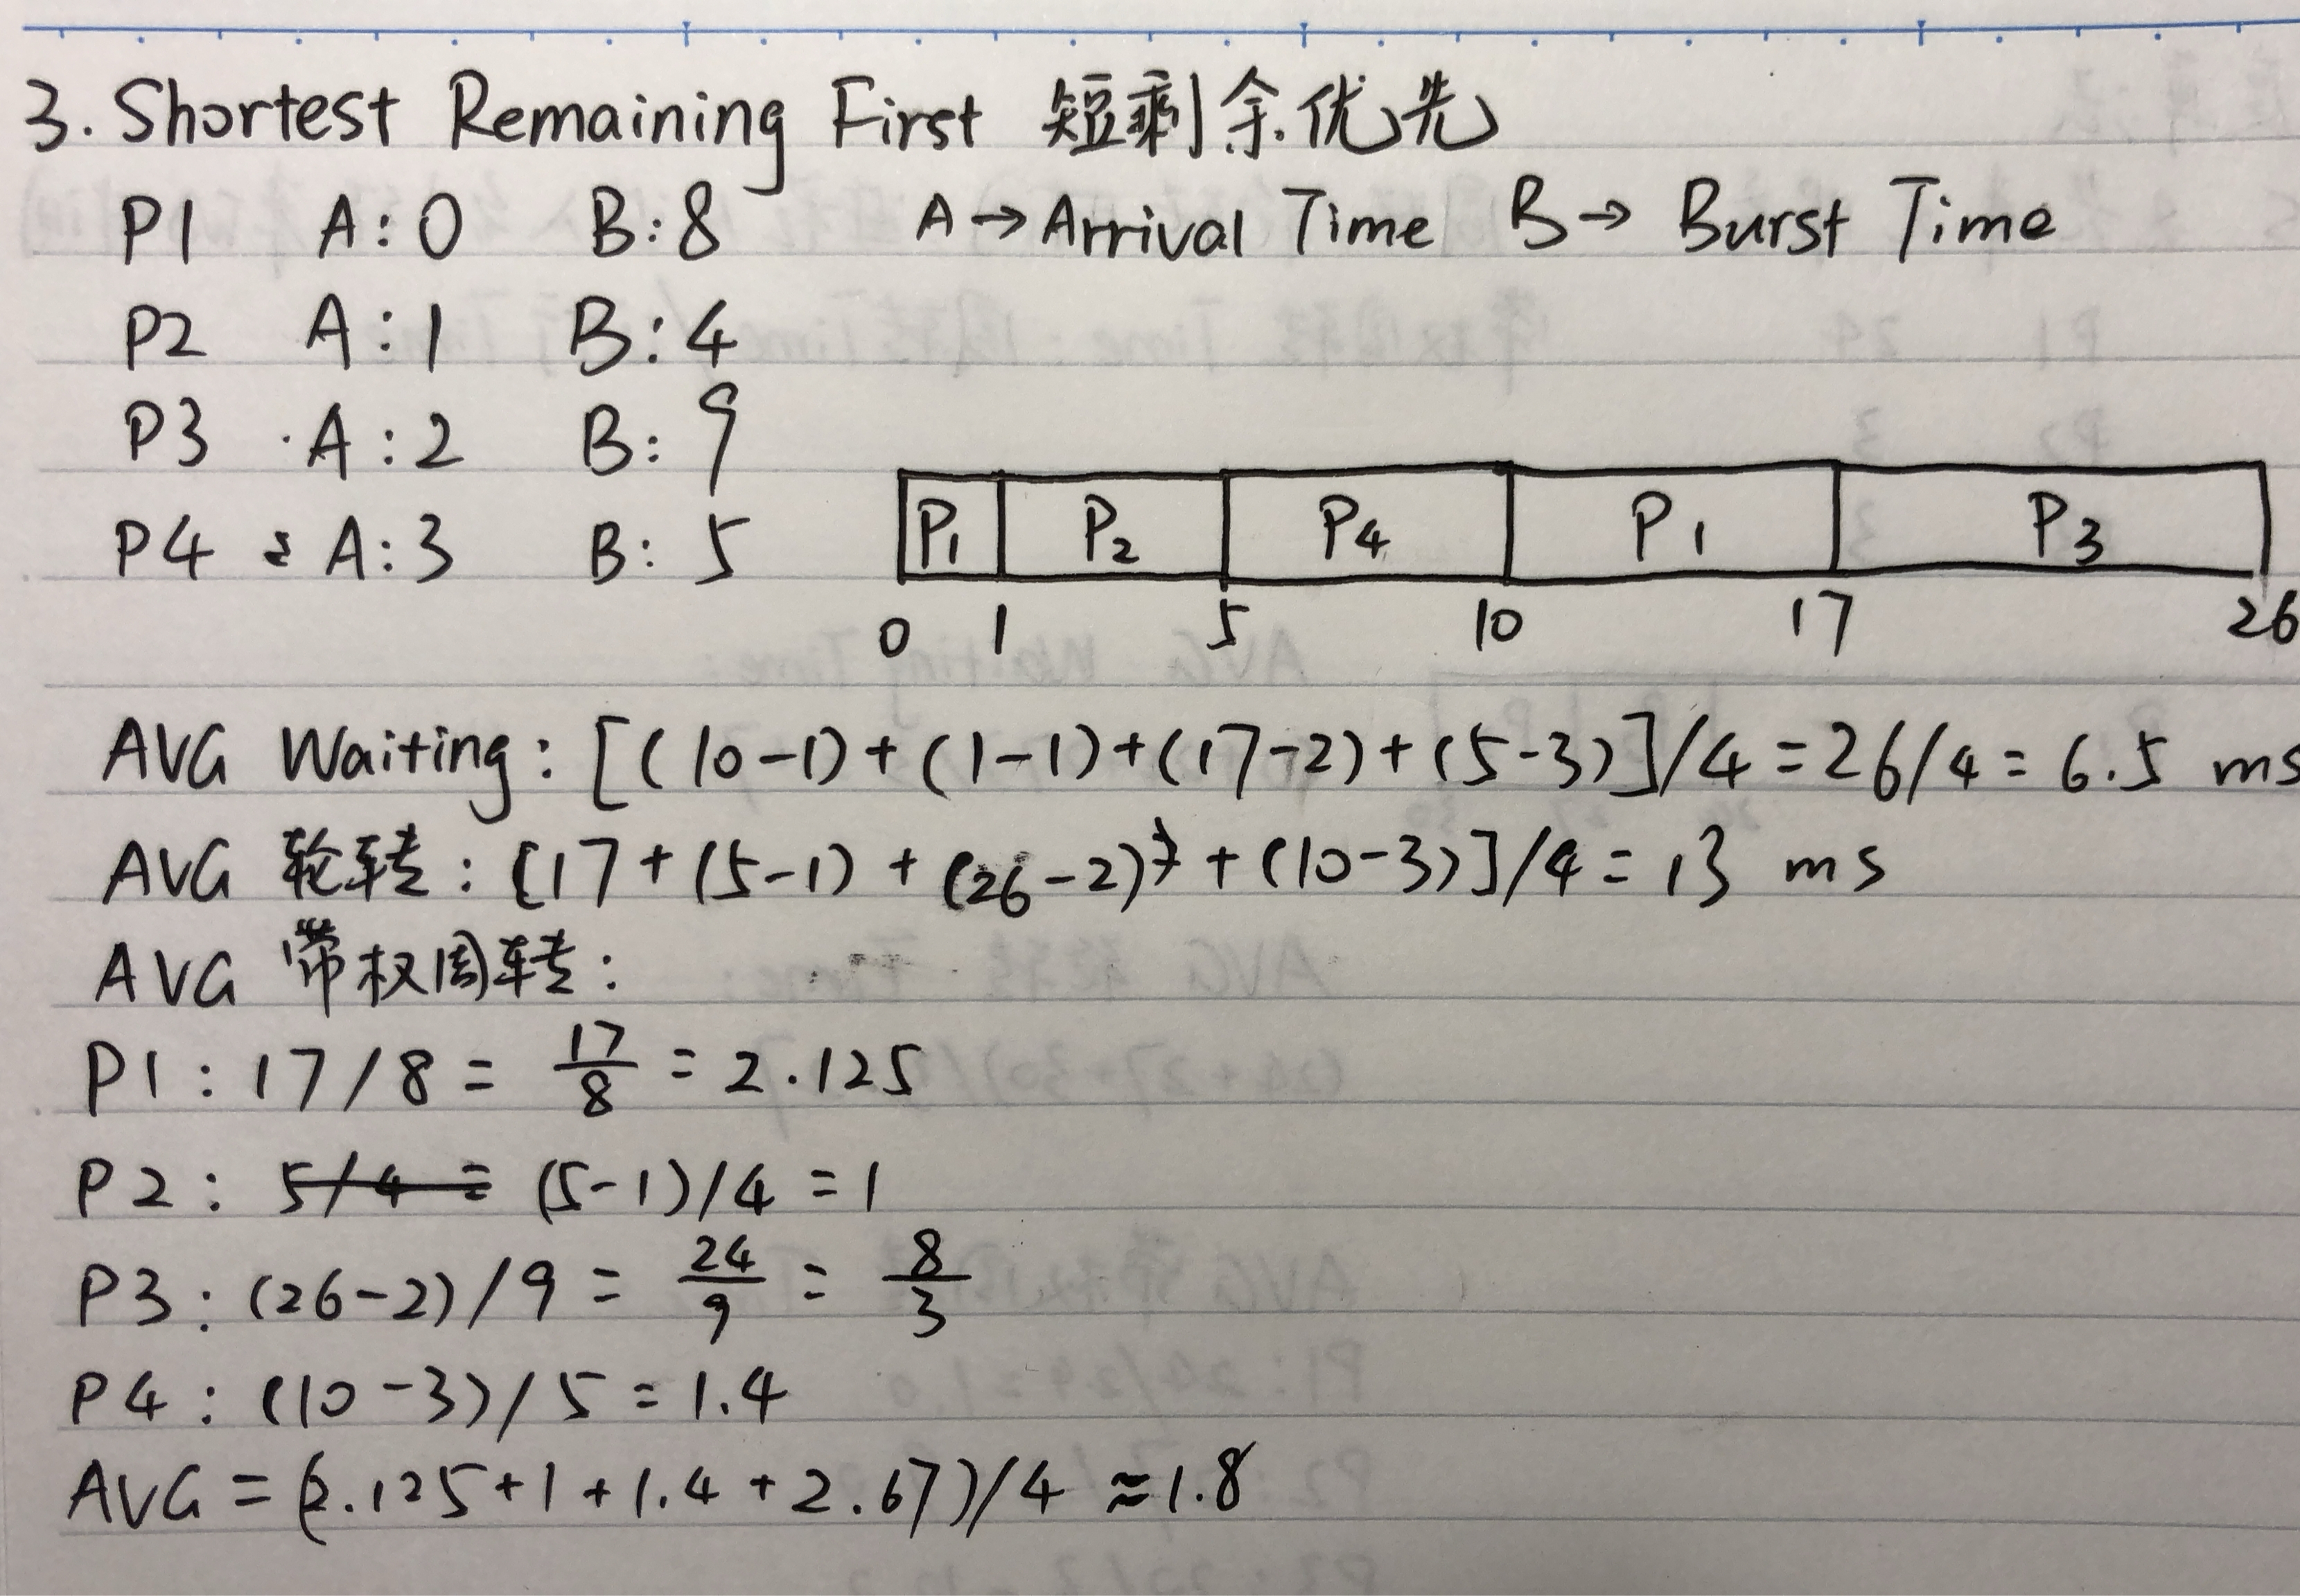 3. Shortest Remaining First 短剩余优先
P1 A:0 B:8 A→Arrival Time B→Burst Time
P2 A:1 B:4
P3 A:2 B:9
P4 A:3 B:5
P1 P2 P4 P1 P3
0 1 5 10 17 26
AVG Waiting: [(10-1)+(1-1)+(17-2)+(5-3)]/4=26/4=6.5 ms
AVG 轮转: [17+(5-1)+(26-2)+(10-3)]/4=13 ms
AVG 带权周转:
P1: 17/8 = 17/8 = 2.125
P2: 5/4 = (5-1)/4 = 1
P3: (26-2)/9 = 24/9 = 8/3
P4: (10-3)/5 = 1.4
AVG = (2.125+1+1.4+2.67)/4 ≈1.8